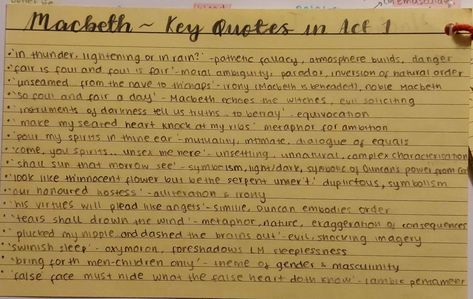 Macbeth ~ Key Quotes in Act 1
• 'in thunder, lightening or in rain?' - pathetic fallacy, atmosphere builds, danger
• 'fair is foul and foul is fair' - moral ambiguity, paradox, inversion of natural order
• 'unseamed from the nave to th'chaps' - irony (Macbeth is beheaded), noble Macbeth
• 'so foul and fair a day' - Macbeth echoes the witches, evil soliciting
• 'instruments of darkness tell us truths, to betray' - equivocation
• 'make my seated heart knock at my ribs' metaphor for ambition
• 'pour my spirits in thine ear' - mutuality, intimate, dialogue of equals
• 'come, you spirits... unsex me here' - unsettling, unnatural, complex characterisation
• 'shall sun that morrow see' - symbolism, light/dark, symbolic of Duncan's power from God
• 'look like th'innocent flower but be the serpent under't' duplicitous, symbolism
• 'our honoured hostess' - alliteration & irony
• 'his virtues will plead like angels' - simile, Duncan embodies order
• 'tears shall drown the wind' - metaphor, nature, exaggeration of consequences
• 'plucked my nipple, and dashed the brains out' - evil, shocking imagery
• 'swinish sleep' - oxymoron, foreshadows LM sleeplessness
• 'bring forth men-children only' - theme of gender & masculinity
• 'false face must hide what the false heart doth know' - iambic pentameter